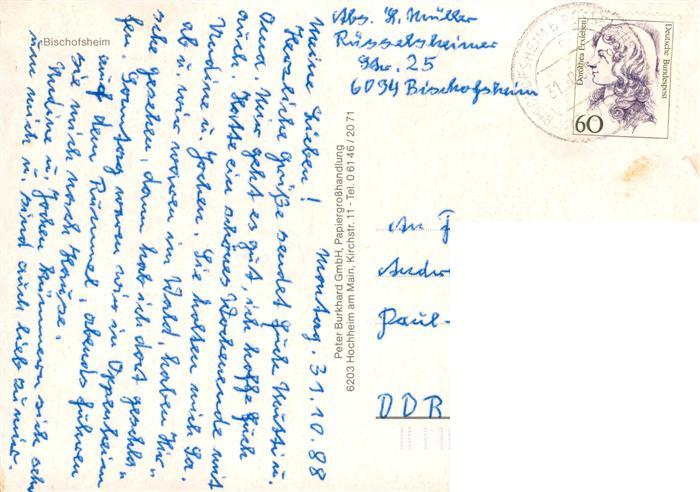 Bischofsheim
Montag, 31.10.88
Meine Lieben!
Herzliche Grüße sendet Euch Mutti u.
Oma. Mir geht es gut, ich hoffe Euch
auch. Hatte ein schönes Wochenende mit
Undine u. Jochen. Sie holten mich Sa.
ab u. wir waren im Wald, haben Hir-
sche gesehen, dann hab ich dort geschla-
fen. Sonntag waren wir in Oppenheim
auf dem Rummel, abends fuhren
sie mich nach Hause.
Undine u. Jochen kümmern sich sehr
um mich u. sind auch lieb zu mir.
Peter Burkhard GmbH, Papiergroßhandlung
6203 Hochheim am Main, Kirchstr. 11 - Tel. 0 61 46 / 20 71
Abs. H. Müller
Rüsselsheimer
Str. 25
6094 Bischofsheim
Dorothea Erxleben
Deutsche Bundespost
60
An F
Andre
Paul-
DDR